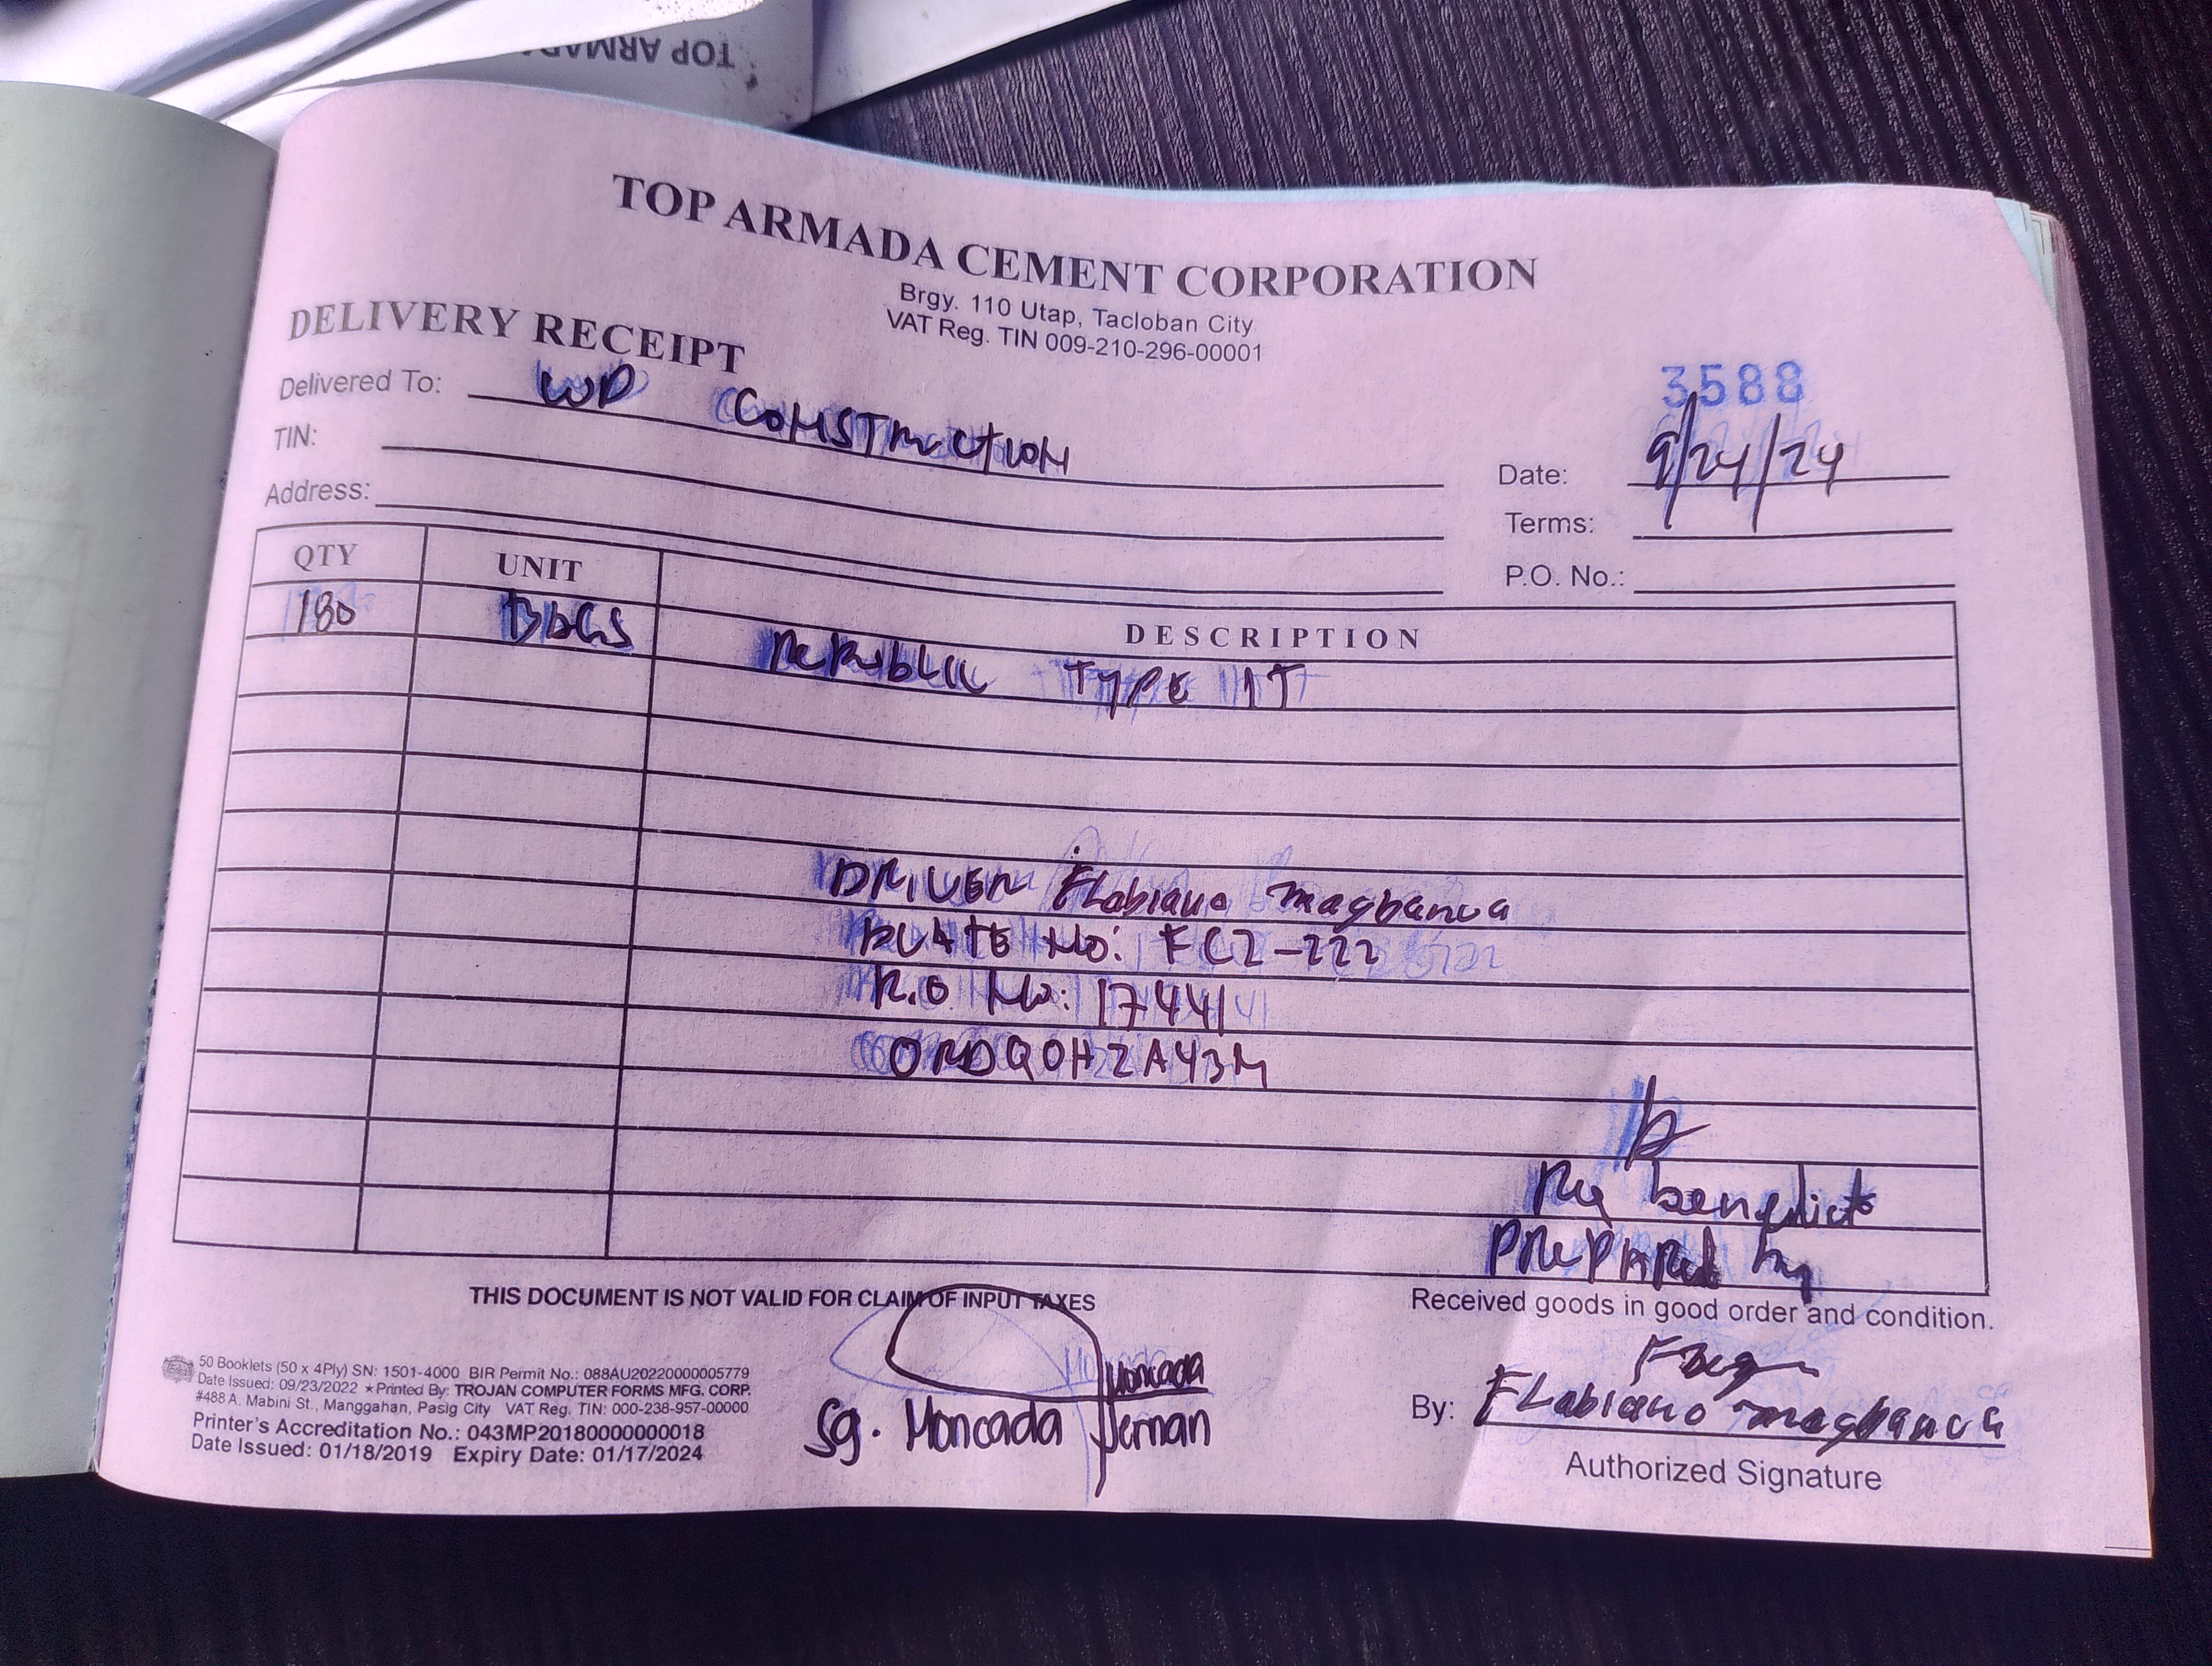 TOP ARMADA
TOP ARMADA CEMENT CORPORATION
Brgy. 110 Utap, Tacloban City
VAT Reg. TIN 009-210-296-00001
DELIVERY RECEIPT
3588
Delivered To: WD CONSTRUCTION
TIN:
Address:
Date: 9/24/24
Terms:
P.O. No.:
QTY UNIT DESCRIPTION
180 BAGS REPUBLIC TYPE 1T
DRIVER FLabiano magbanua
PLATE No: FCZ-222
R.O No: 17441
ORDQOHZA43M
Ry benedicto
PREPARED by
THIS DOCUMENT IS NOT VALID FOR CLAIM OF INPUT TAXES
Received goods in good order and condition.
50 Booklets (50 x 4Ply) SN: 1501-4000 BIR Permit No.: 088AU20220000005779
Date Issued: 09/23/2022 ★Printed By: TROJAN COMPUTER FORMS MFG. CORP.
#488 A. Mabini St., Manggahan, Pasig City VAT Reg. TIN: 000-238-957-00000
Printer's Accreditation No.: 043MP20180000000018
Date Issued: 01/18/2019 Expiry Date: 01/17/2024
Moncada
Sg. Moncada Jernan
By: FLabiano magbanua
Authorized Signature